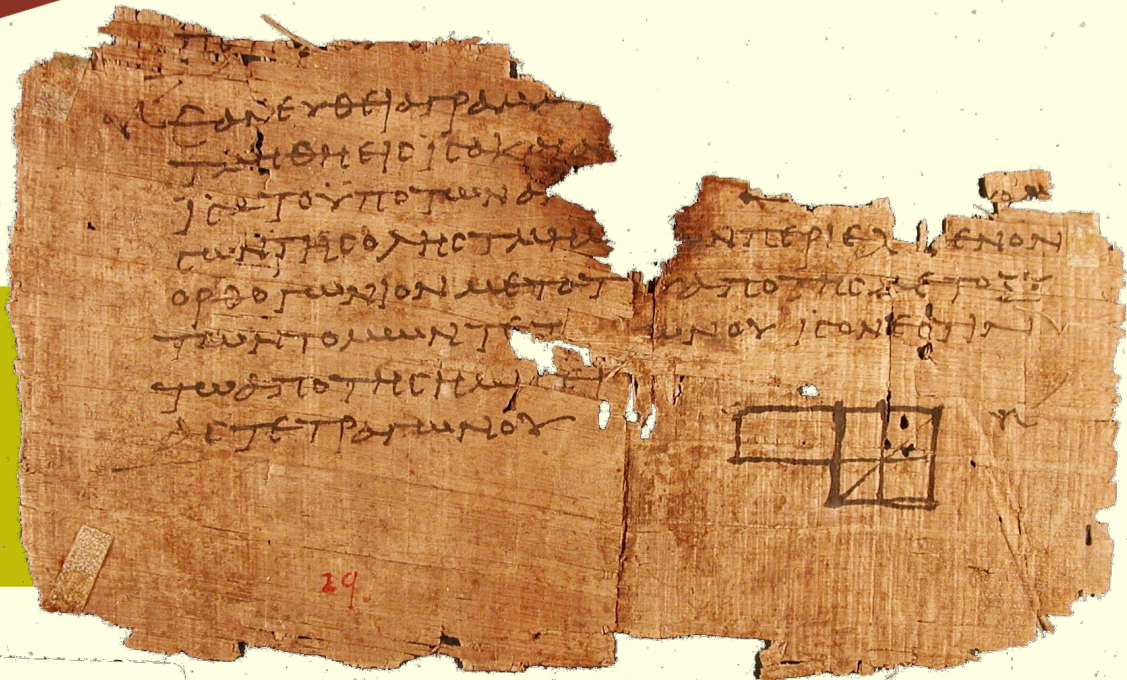 ΕΑΝΕΥΘΕΙΑΓΡΑΜΜ
ΤΜΗΘΗΕΙϹΙϹΑΚΑΙΑ
ΙϹΑΤΟΥΠΟΤΩΝΑΝ
ϹΩΝΤΗϹΟΛΗϹΤΜΗΜ ΩΝΠΕΡΙΕΧ ΜΕΝΟΝ
ΟΡΘΟΓΩΝΙΟΝΜΕΤΑΤ ΑΠΟΤΗϹΜΕΤΟΞΥ
ΤΩΝΤΟΜΩΝΤΕΤ ΩΝΟΥ ΙϹΟΝΕϹΤΙΝ
ΤΩΑΠΟΤΗϹΗΜΙϹΕΙ
ΑϹΤΕΤΡΑΓΩΝΟΥ
29